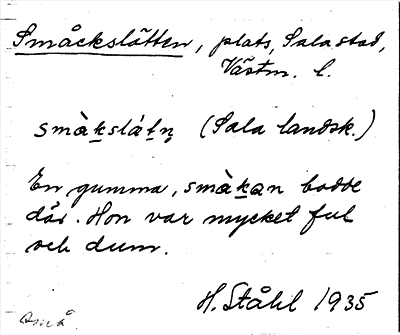 Småckslåtten, plats, Sala stad,
Västm. l.
smàk̲slát̲n̥ (Sala landsk.)
En gumma, smàk̲an bodde
där. Hon var mycket ful
och dum.
H. Ståhl 1935
Små